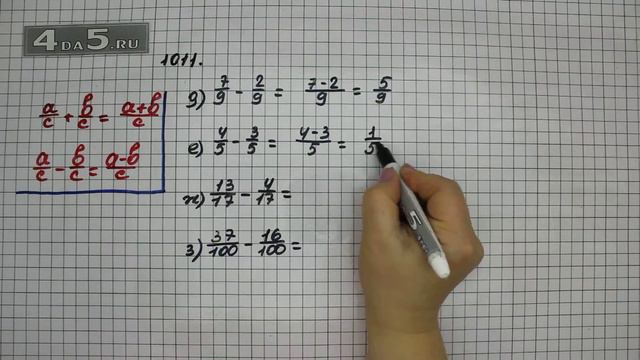 4DA5.RU
1011.
a/c + b/c = a+b/c
a/c - b/c = a-b/c
д) 7/9 - 2/9 = 7-2/9 = 5/9
е) 4/5 - 3/5 = 4-3/5 = 1/5
ж) 13/17 - 4/17 =
з) 37/100 - 16/100 =
5